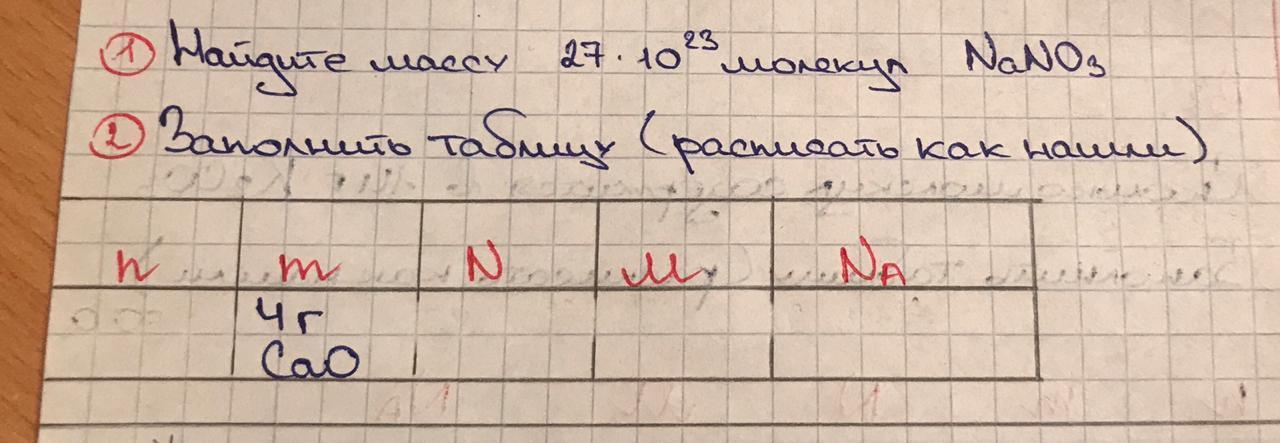 ① Найдите массу 27·10²³ молекул NaNO₃
② Заполнить таблицу (расписать как нашли)
n m N M Nₐ
4г
CaO